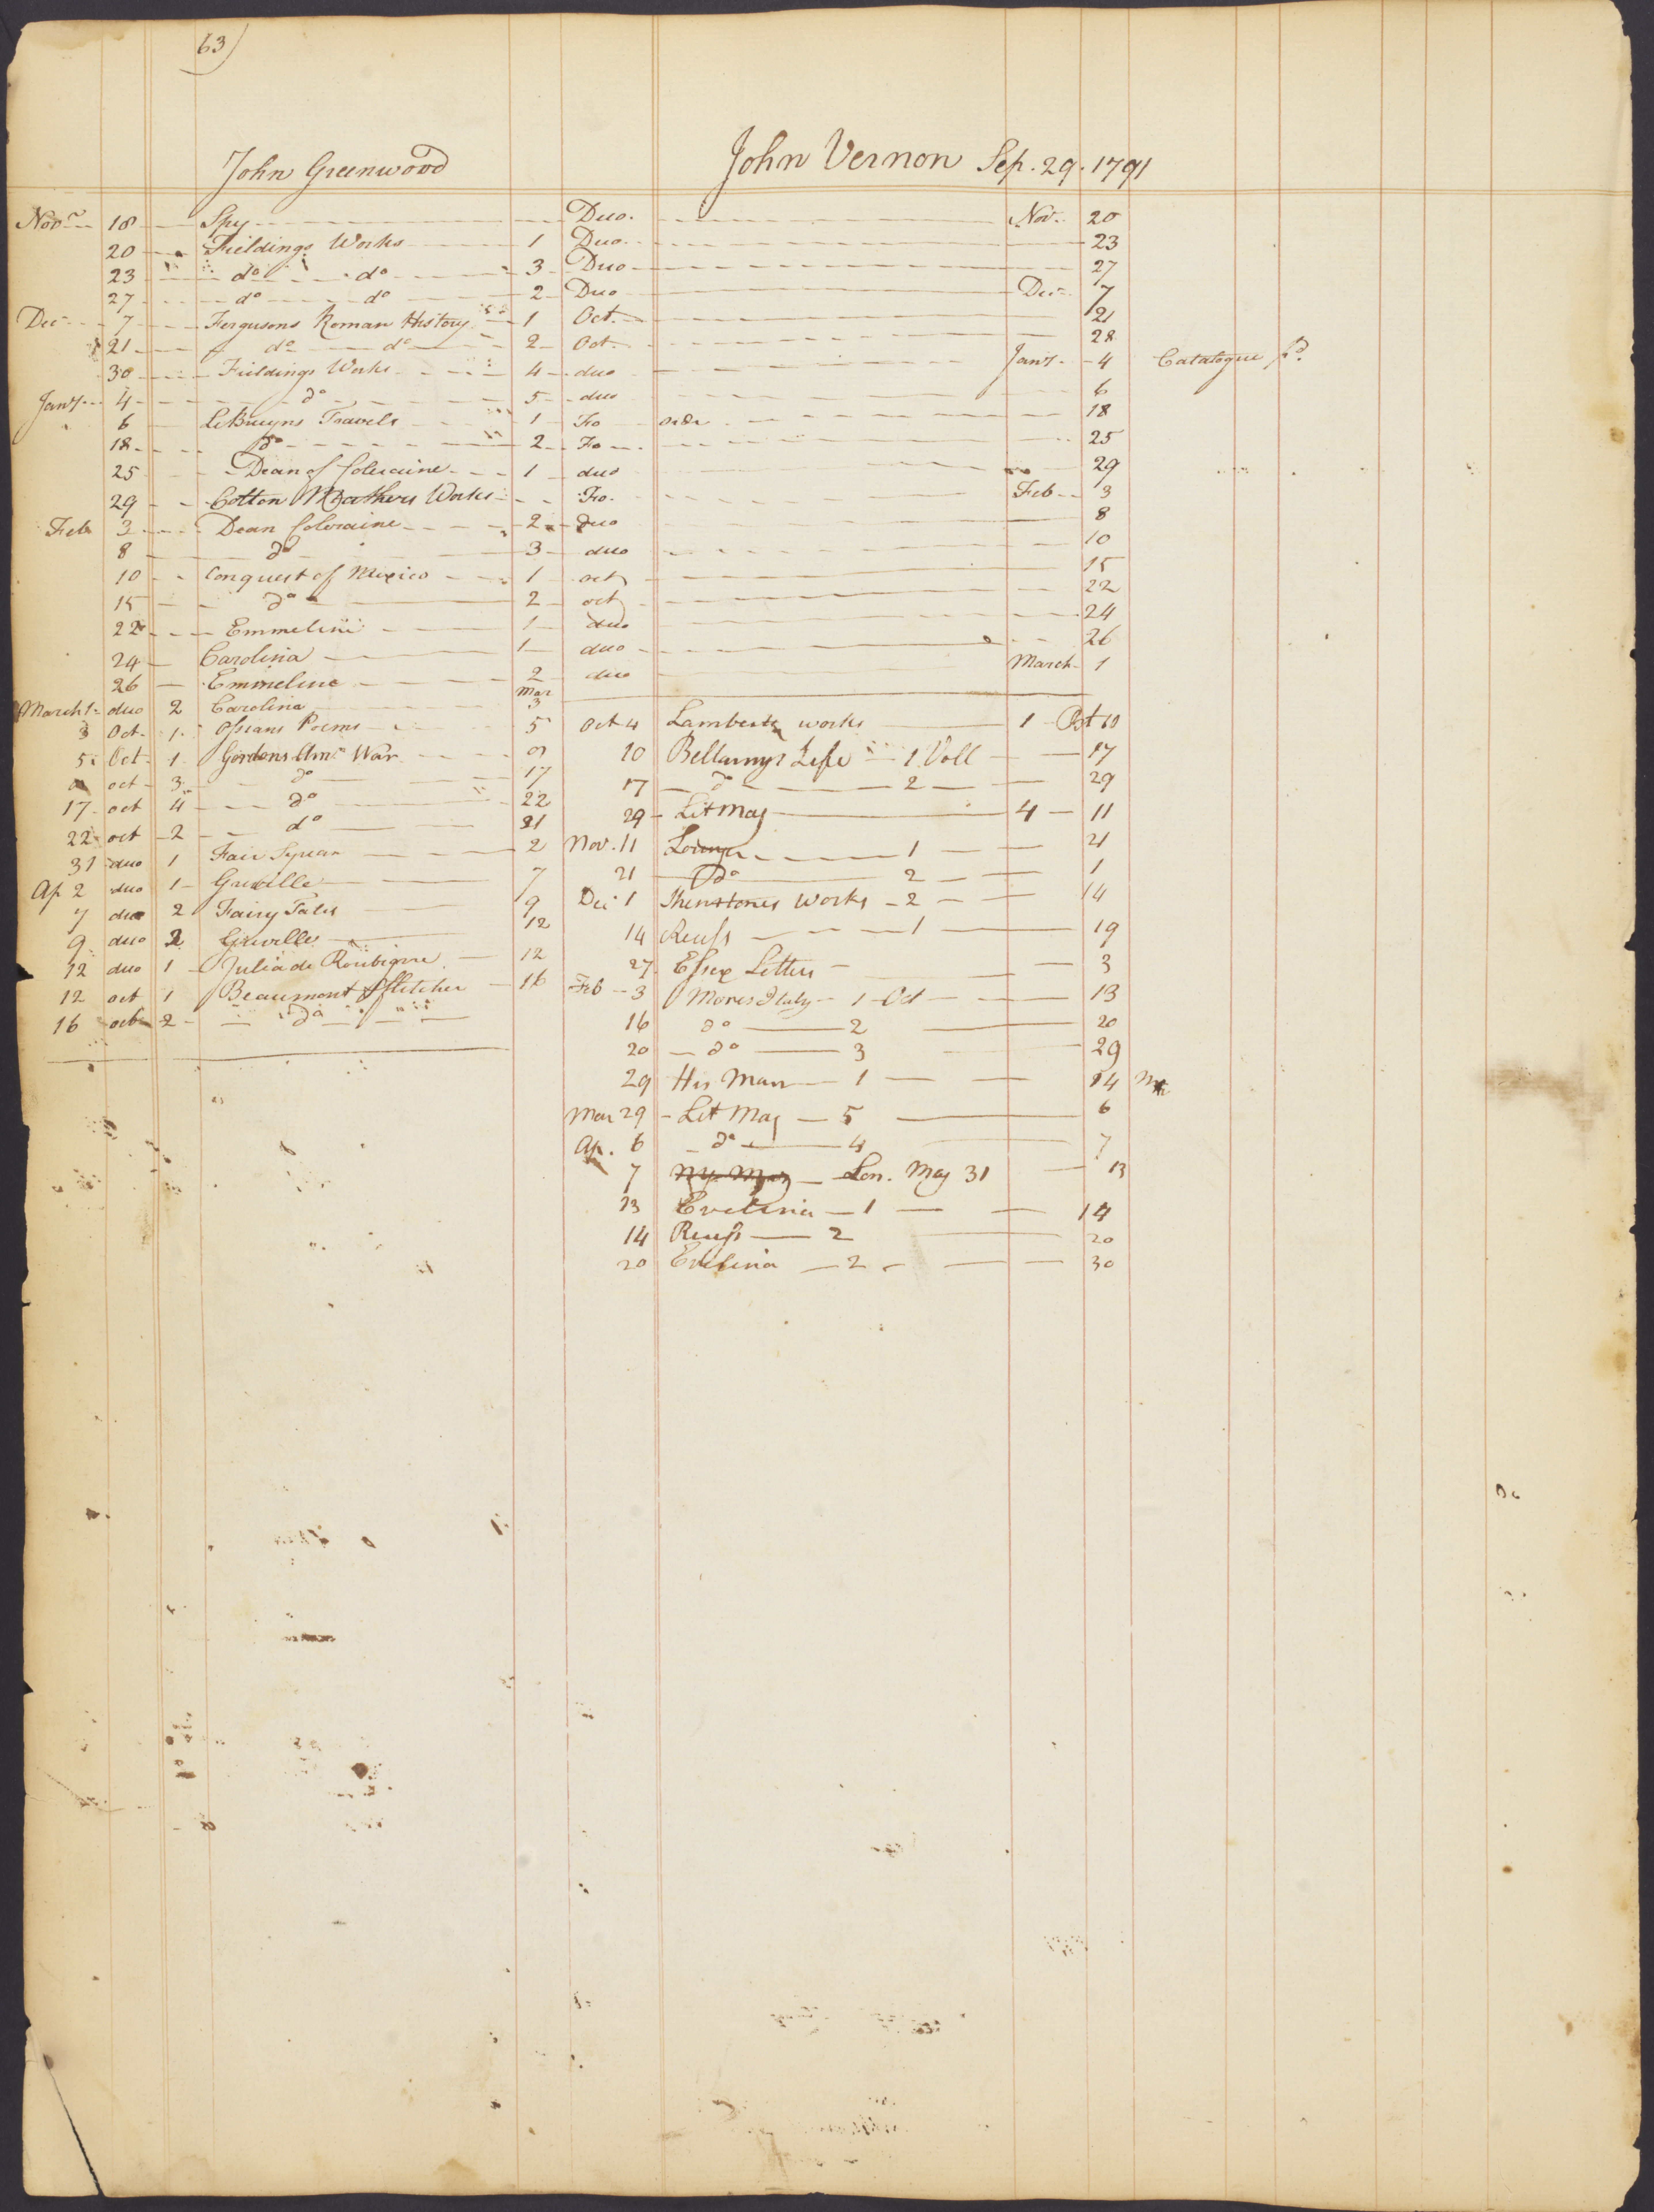 63)
John Greenwood
Novr 18 Spy Duo. Nov. 20
20 Fieldings Works 1 Duo 23
23 do do 3 Duo 27
27 do do 2 Duo Decr 7
Decr 7 Fergusons Roman History 1 Oct. 21
21 do do 2 Oct 28
30 Fieldings Works 4 duo Jany 4 Catalogue pd.
Jany 4 do 5 duo 6
6 LeBruyns Travels 1 Fo order 18
18 do 2 Fo 25
25 Dean of Coleraine 1 duo 29
29 Cotton Mathers Works Fo. Feb 3
Feb 3 Dean Coleraine 2 duo 8
8 do 3 duo 10
10 Conquest of Mexico 1 oct 15
15 do 2 oct 22
22 Emmeline 1 duo 24
24 Carolina 1 duo 26
26 Emmeline 2 duo March 1
March 1 duo 2 Carolina Mar 3
3 Oct. 1 Ossians Poems 5
5 Oct 1 Gordons Amn War 9
oct 3 do 17
17 oct 4 do 22
22 oct 2 do 31
31 duo 1 Fair Syrian 2
Ap 2 duo 1 Greville 7
7 duo 2 Fairy Tales 9
9 duo 2 Greville 12
12 duo 1 Julia de Roubigne 12
12 oct 1 Beaumont & Fletcher 16
16 oct 2 do
John Vernon Sep. 29. 1791
Oct 4 Lamberts works 1 Oct 10
10 Bellamys Life 1 Voll 17
17 do 2 29
29 Lit Mag 4 11
Nov. 11 1 21
21 do 2 1
Dec 1 Shenstones Works 2 14
14 Reuss 1 19
27 Essex Letters 3
Feb 3 Mores Italy 1 Oct 13
16 do 2 20
20 do 3 29
29 His Man 1 14
Mar 29 Lit Mag 5 6
Ap. 6 do 4 7
7 Lon. Mag 31 13
13 Evelina 1 14
14 Reuss 2 20
20 Evelina 2 30